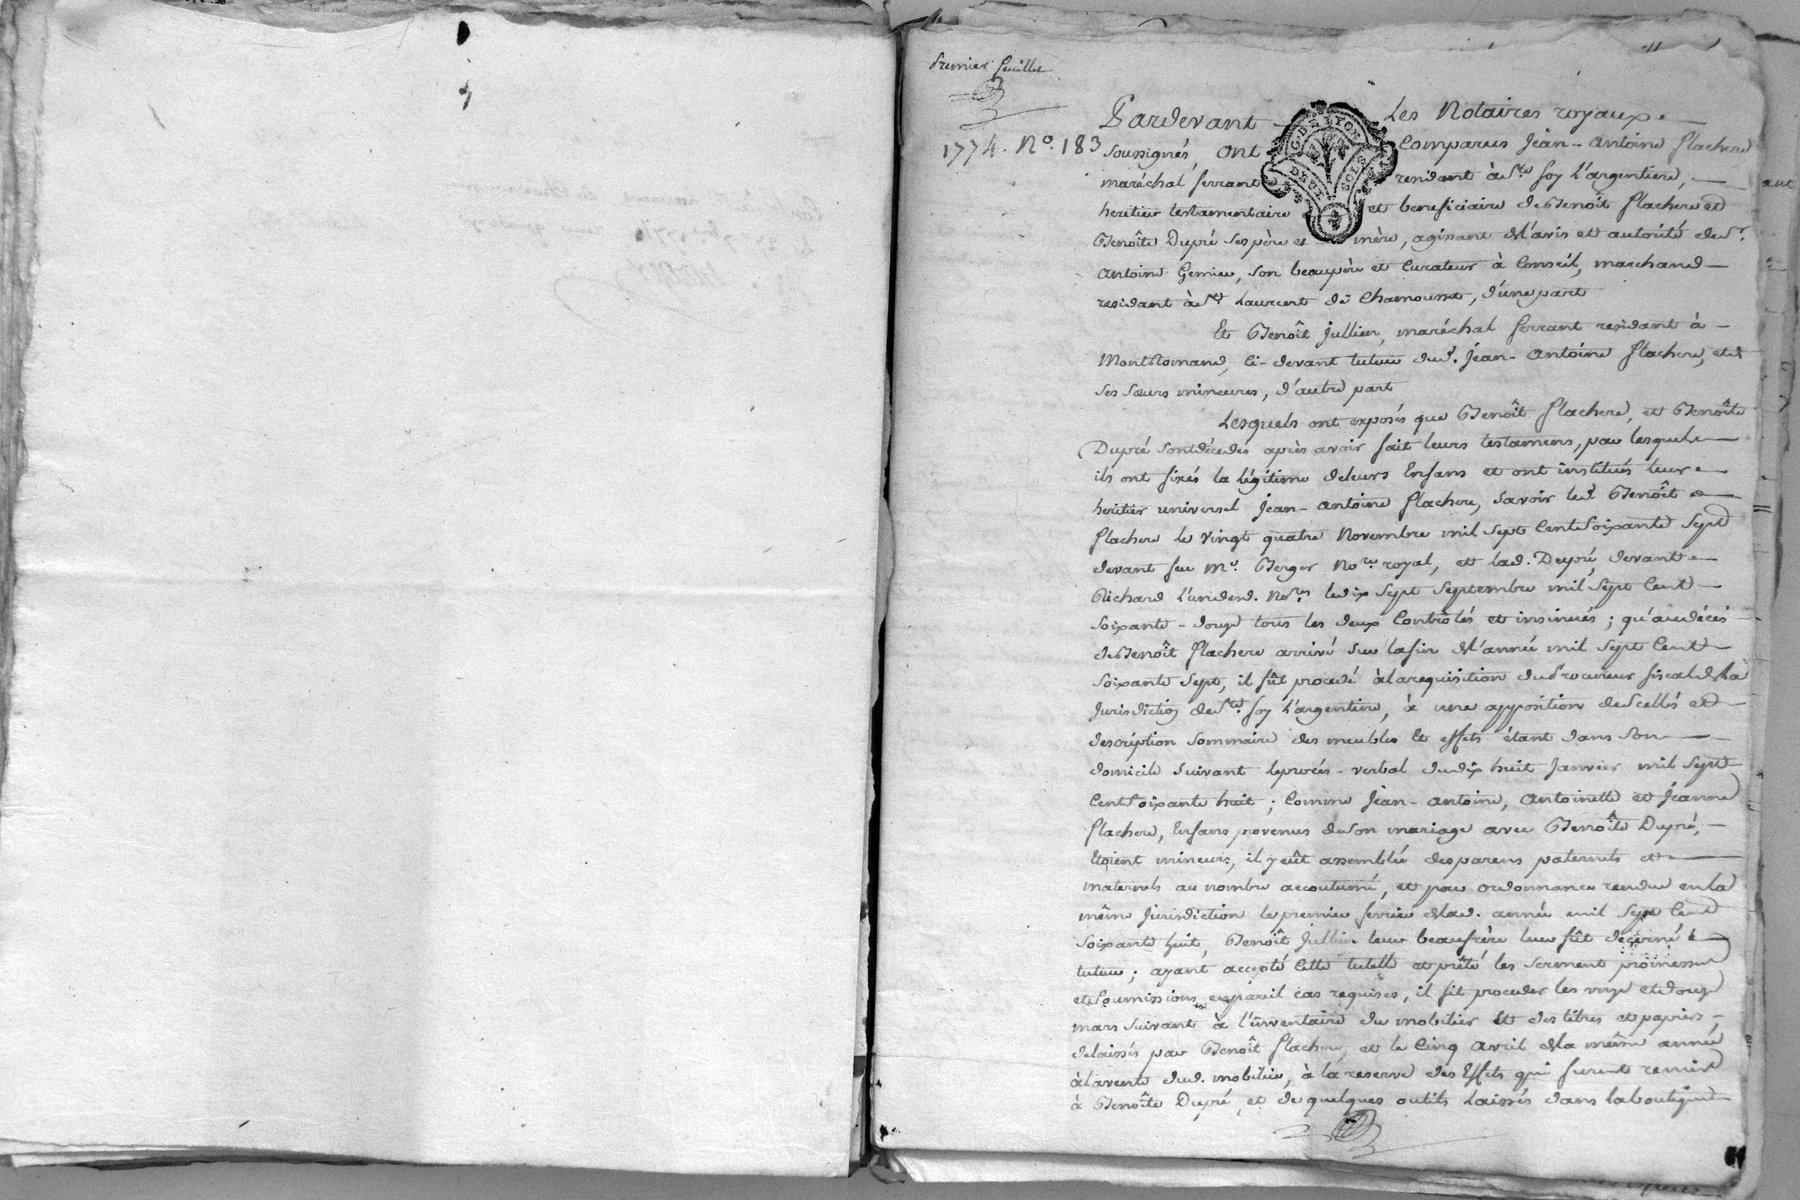 Premier feuillet
1774. N°. 183
G. DE LYON
DEUX SOLS
Pardevant Les Notaires royaux
soussignés, ont Comparus Jean-Antoine flachere
maréchal ferrant residant à Ste foy L'argentiere,
heritier testamentaire et beneficiaire de Benoît flachere et
Benoîte Dupré ses père et mère, agissant de l'avis et autorité de Sr.
Antoine Gemier, son beaupère et Curateur à Conseil, marchand
residant à St Laurent de Chamousset, d'une part
Et Benoît Jullien, maréchal ferrant residant à
MontRomand, Ci-devant tuteur dud. Jean-Antoine flachere, et de
ses sœurs mineures, d'autre part
Lesquels ont exposés que Benoît flachere, et Benoîte
Dupré sont décedés après avoir fait leurs testamens, par lesquels
ils ont fixés la légitime de leurs Enfans et ont institués leur
heritier universel Jean-Antoine flachere, savoir led. Benoît
flachere le Vingt quatre Novembre mil sept Cent Soixante Sept
devant feu Me. Berger Nore royal, et lad. Dupré devant
Richard L'un desd. Nores le dix sept septembre mil sept Cent
soixante-douze tous les deux Controlés et insinués ; qu'au décés
de Benoît flachere arrivé sur la fin de l'année mil sept Cent
soixante sept, il fût procedé à la requisition du Procureur fiscal de la
Jurisdiction de Ste. foy L'argentiere, à une apposition de Scellés et
description sommaire des meubles et effets étant dans son
domicile suivant le procés-verbal du dix huit Janvier mil sept
Cent soixante huit ; Comme Jean-Antoine, Antoinette et Jeanne
flachere, Enfans provenus de son mariage avec Benoîte Dupré,
étoient mineurs, il y eût assemblée des parens paternels et
maternels au nombre accoutumé, et par ordonnance rendue en la
même Jurisdiction le premier fevrier de lad. année mil sept Cent
soixante huit, Benoît Jullien leur beaufrère leur fût décerné
tuteur ; ayant accepté Cette tutelle et prêté les serment promesses
et soumissions en pareil cas requises, il fit proceder les onze et douze
mars suivant à l'inventaire du mobilier et des titres et papiers
delaissés par Benoît flachere, et le Cinq Avril de la même année
à la vente dud. mobilier, à la reserve des Effets qui furent remis
à Benoîte Dupré, et de quelques outils laissés dans la boutique